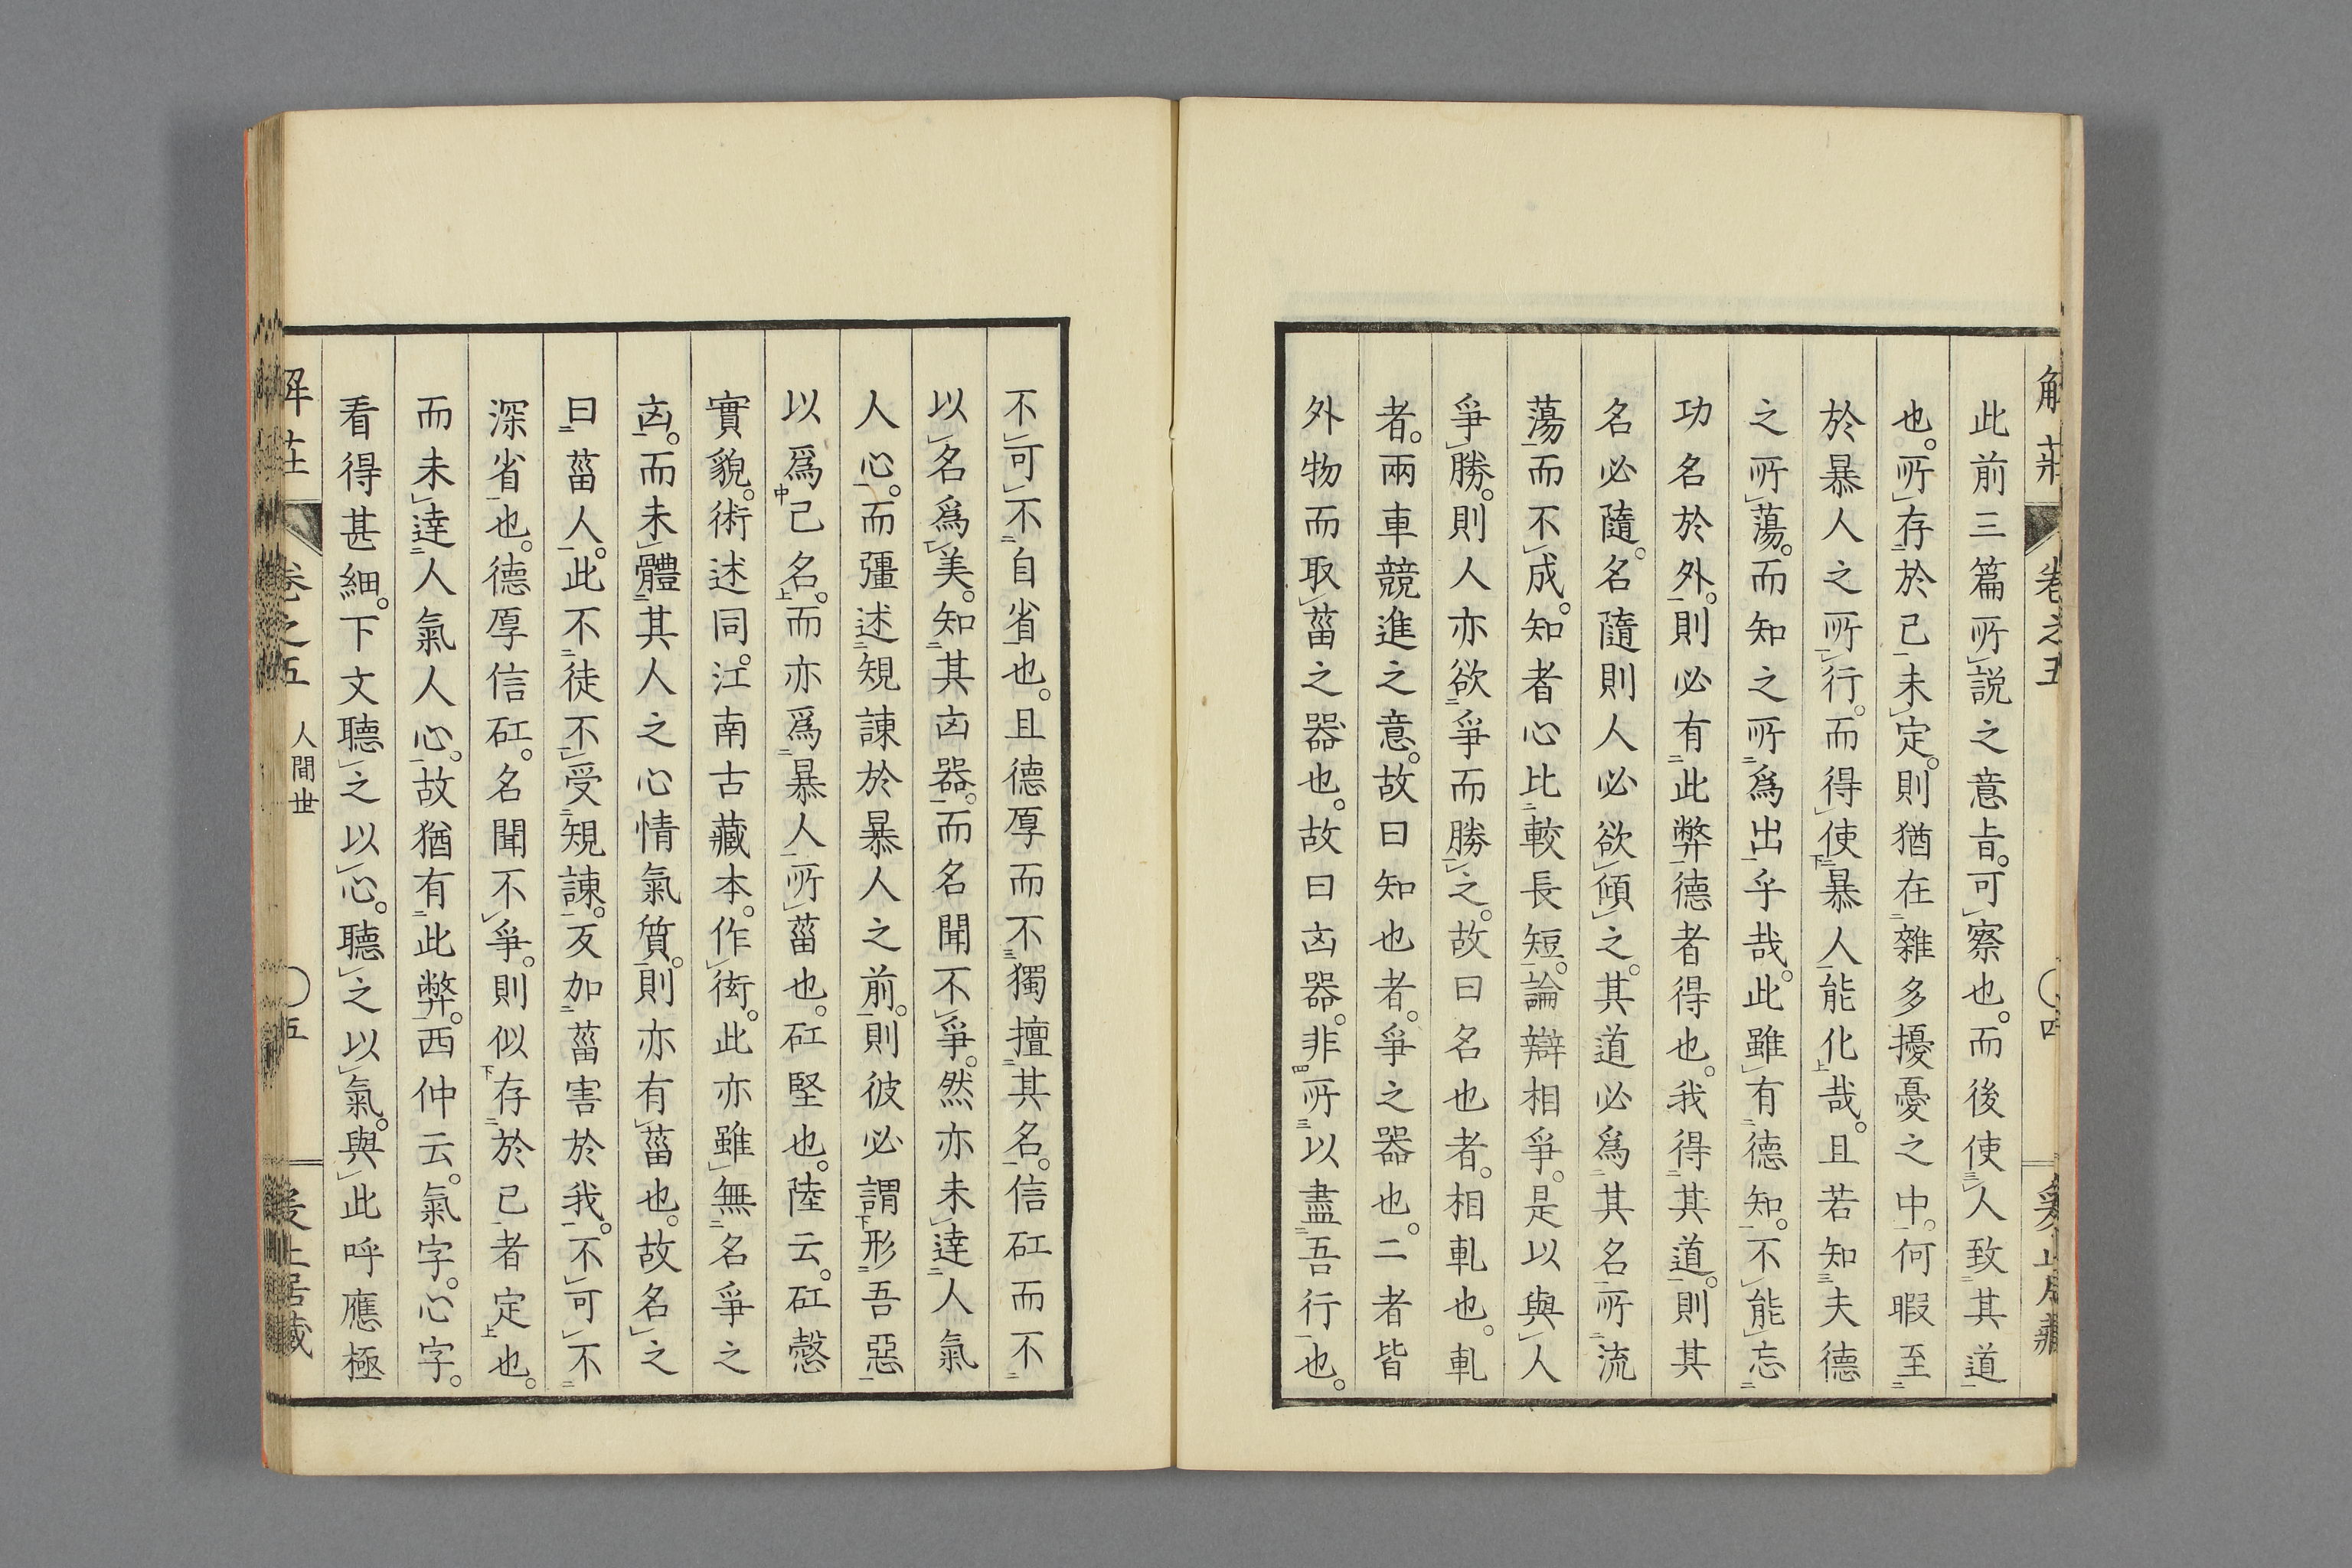 此前三篇所說之意旨。可察也。而後使人致其道
也。所存於己未定。則猶在雜多擾憂之中。何暇至
於暴人之所行。而得使暴人能化哉。且若知夫德
之所蕩。而知之所爲出乎哉。此雖有德知。不能忘
功名於外。則必有此弊。德者得也。我得其道。則其
名必隨。名隨則人必欲傾之。其道必爲其名所流
蕩而不成。知者心比較長短。論辯相爭。是以與人
爭勝。則人亦欲爭而勝之。故曰名也者。相軋也。軋
者。兩車競進之意。故曰知也者。爭之器也。二者皆
外物而取菑之器也。故曰凶器。非所以盡吾行也。
不可不自省也。且德厚而不獨擅其名。信矼而不
以名爲美。知其凶器。而名聞不爭。然亦未達人氣
人心。而彊述規諫於暴人之前。則彼必謂形吾惡
以爲己名。而亦爲暴人所菑也。矼堅也。陸云。矼慤
實貌。術述同。江南古藏本。作衒。此亦雖無名爭之
凶。而未體其人之心情氣質。則亦有菑也。故名之
曰菑人。此不徒不受規諫。反加菑害於我。不可不
深省也。德厚信矼。名聞不爭。則似存於己者定也。
而未達人氣人心。故猶有此弊。西仲云。氣字。心字。
看得甚細。下文聽之以心。聽之以氣。與此呼應極
人間世